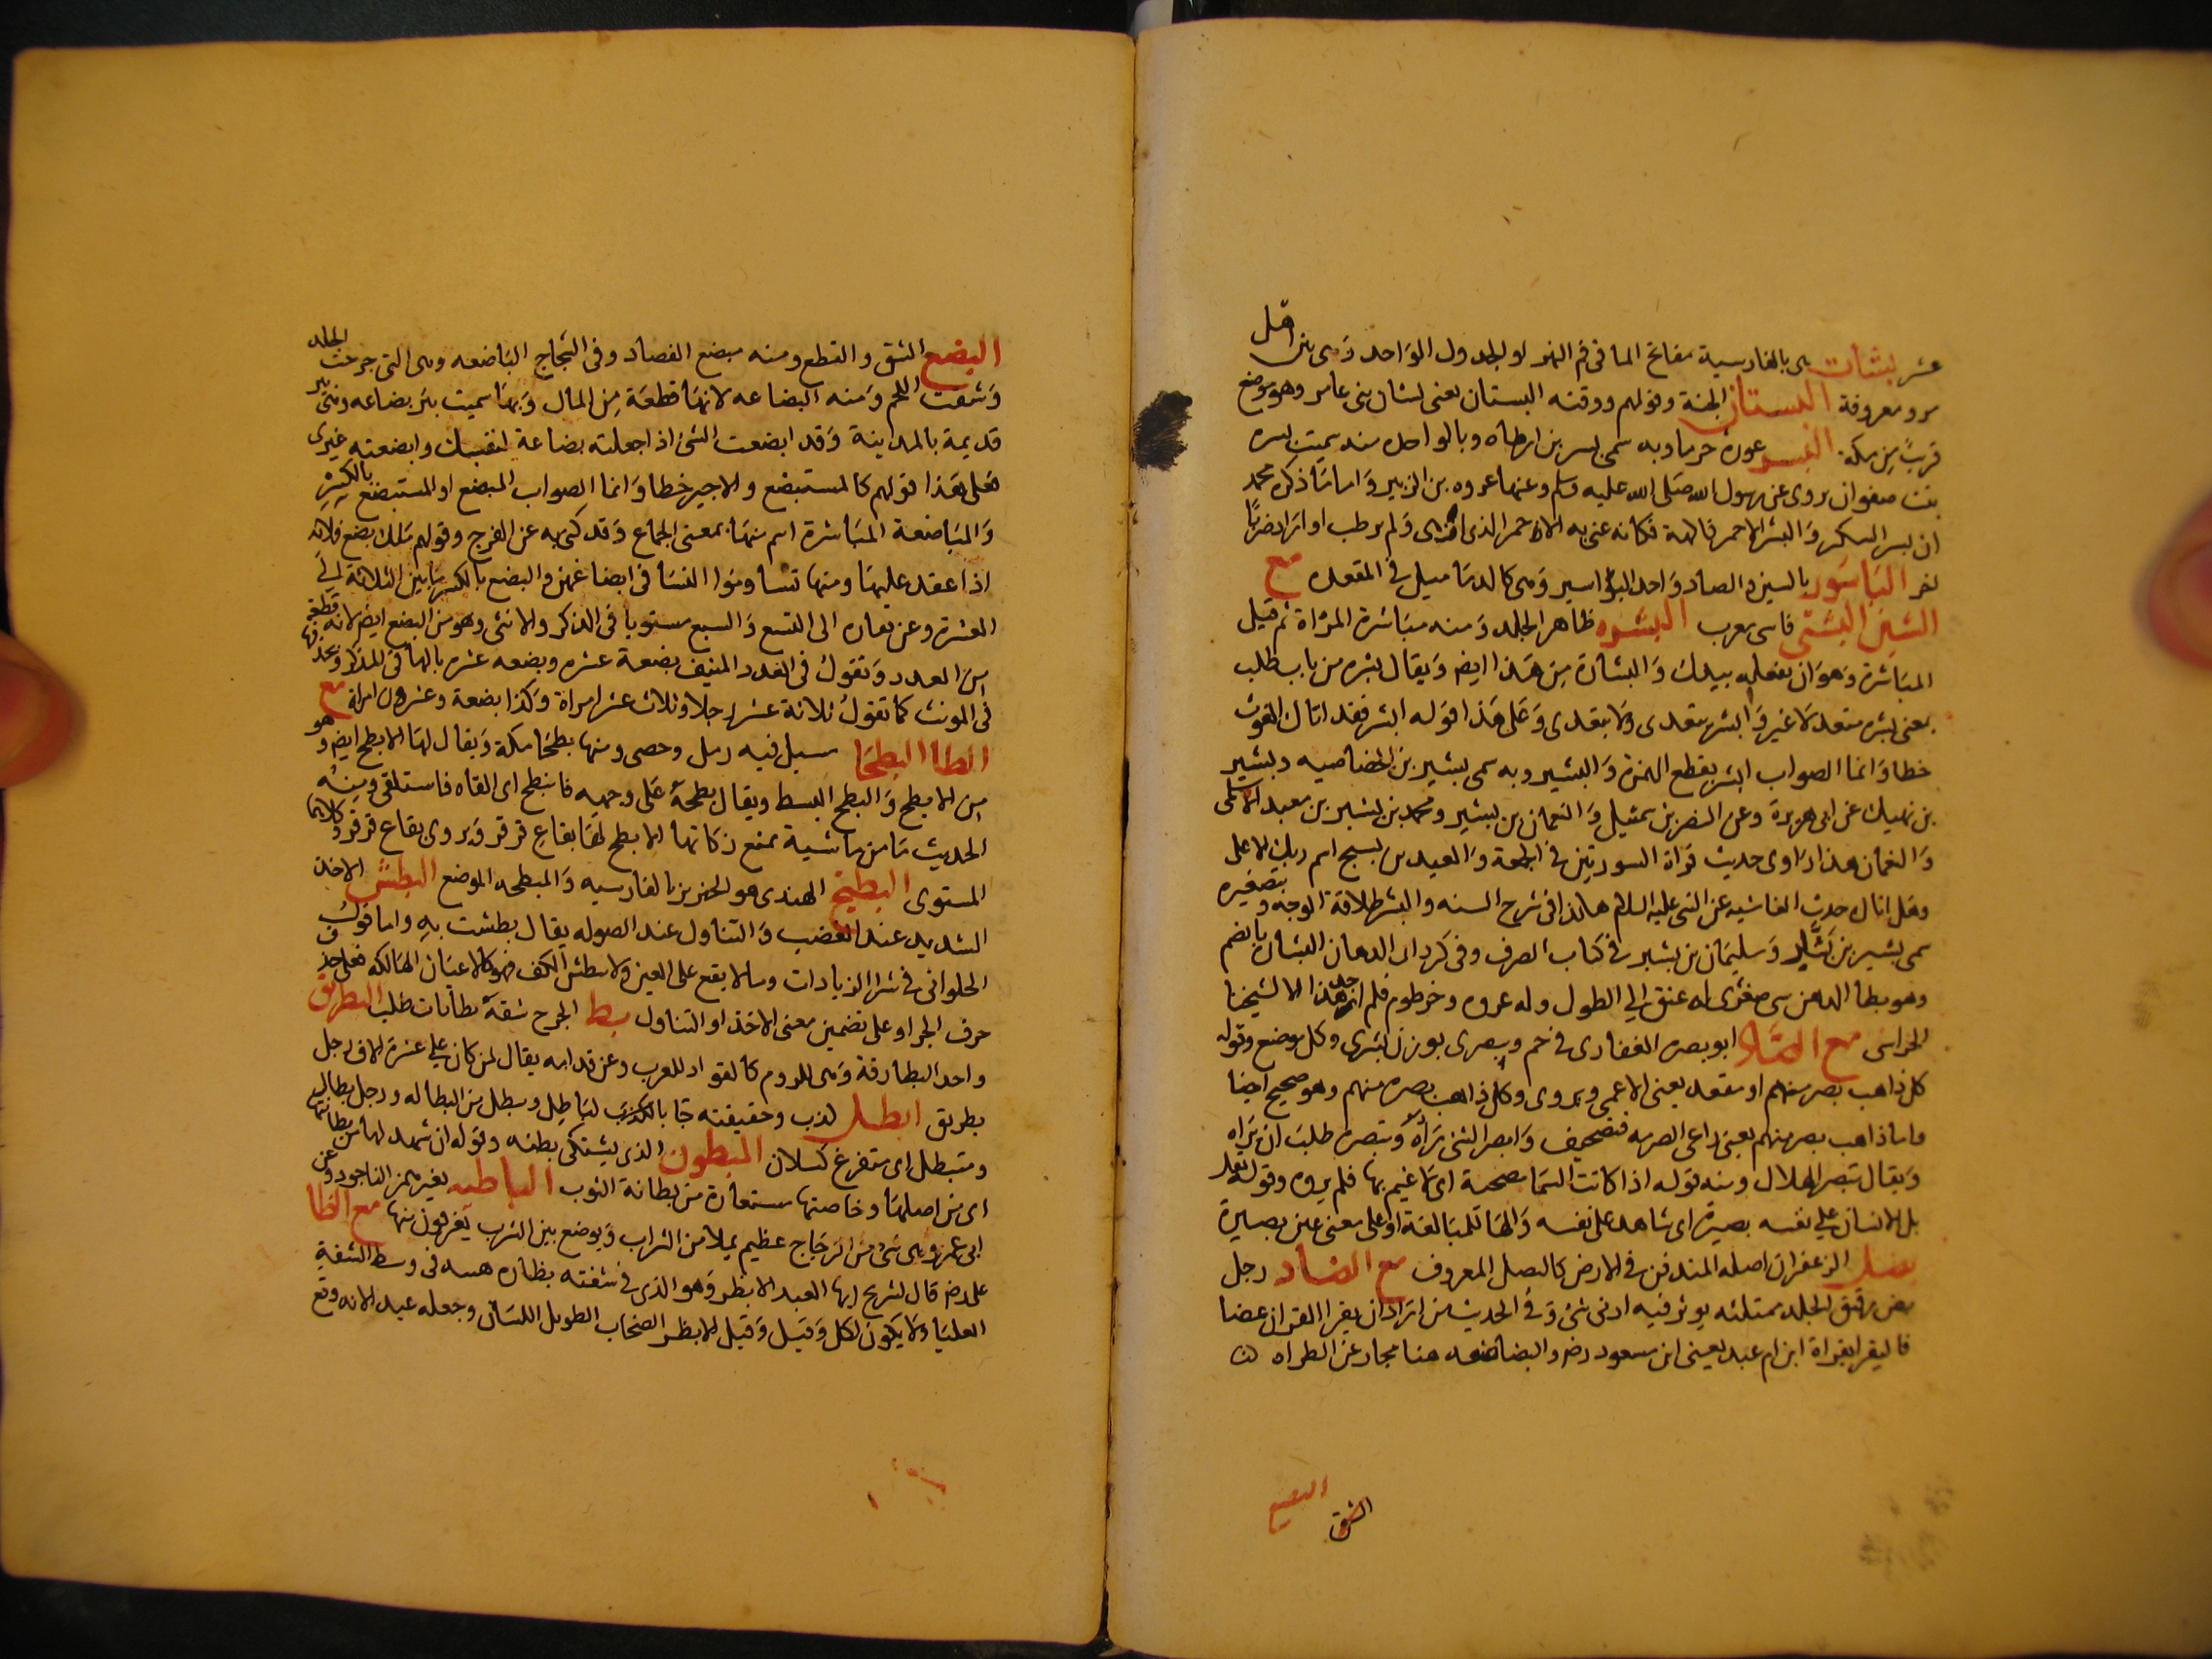 عشر بستات هي بالفارسية مفاتح الما في فم النهر او الجدول الواحد وهى بين اهل
مرو معروفة البستان الجنة وقولهم ووقته البستان يعنى بستان بنى عامر وهو موضع
قريب من مكة البسر عوره خرما وبه سمى بسر بن ارطاه وبالواحده منه سميت بسره
بنت صفوان يروى عن رسول الله صلى الله عليه وسلم وعنها عروه بن الزبير واما ما ذكره محمد
ان بسر السكر والبسر الاحمر فكانه عنى به الاحمر الذى ولم يرطب او اراد ضربا
اخر الباسور بالسين والصاد واحد البواسير وهى كالدماميل فى المقعده مع
الشين البشتى فاسى معرب البشره ظاهر الجلد ومنه مباشرة المراة ثم قيل
المباشرة وهو ان تفعله بيدك والبشارة من هذا ايضا ويقال بشره من باب طلب
بمعنى بشره متعد لا غير وابشر يتعدى ولا يتعدى وعلى هذا قوله ابشر فقد اتاك الغوث
خطا وانما الصواب ابشر بقطع الهمزة والبشير وبه سمى بشير بن الخصاصيه وبشير
بن نهيك عن ابى هريرة وعن النضر بن شميل والنعمان بن بشير ومحمد بن بشير بن معبد الاسلمى
والنعمان هذا راوى حديث قراة السورتين فى الجمعة والعيدين بسبح اسم ربك الاعلى
وهل اتاك حديث الغاشيه عن النبى عليه السلام هكذا فى شرح السنه والبشر طلاقة الوجه وبتصغيره
سمى بشير بن وسليمان بن بشير فى كتاب الصرف وفى كردار الدهان البشار بالضم
وهو بطا الدهن سى صفرى له عنق الى الطول وله عروه وخرطوم فلم اجد هذا الا لشيخنا
مع الصاد ابو بصره الغفارى فى خم وبصرى بوزن بشرى وكل موضع وقوله
كل ذاهب بصره منهم او مقعد يعنى الاعمى ويروى وكل ذاهب بصره منهم وهو صحيح ايضا
واما ذاهب بصر منهم يعنى داعى الصره فتصحيف وابصر الشئ راه وتبصره طلب ان يراه
ويقال تبصر الهلال ومنه قوله اذا كانت السما مصحية اى لا غيم بها فلم يروه وقوله تعالى
بل الانسان على نفسه بصيرة اى شاهد على نفسه والها للمبالغة او على معنى عين بصيرة
بصل الزعفران اصله المندفن فى الارض كالبصل المعروف مع الضاد رجل
بض رقيق الجلد ممتلئه يوثر فيه ادنى شئ وفى الحديث من اراد ان يقرا القران غضا
فاليقرا بقراة ابن ام عبد يعنى ابن مسعود رضه والبضاضه هنا مجاز عن الطراه
البضع
الشق
البضع الشق والقطع ومنه مبضع الفصاد وفى الشجاج الباضعه وهى التى جرحت الجلد
وشقت اللحم ومنه البضاعه لانها قطعة من المال وبها سميت بئر بضاعه وهى بئر
قديمة بالمدينة وقد ابضعت الشئ اذا جعلته بضاعة لنفسك وابضعته غيرى
فعلى هذا قولهم كالمستبضع والاجير خطا وانما الصواب المبضع او المستبضع بالكسر
والمباضعة المباشرة اسم منها بمعنى الجماع وقد كنى به عن الفرج وقولهم ملك بضع فلانه
اذا عقد عليها ومنها تشاوروا النسا فى ابضاعهن والبضع بالكسر ما بين الثلاثة الى
العشرة وعن الى التسع والسبع مستويا فى المذكر والانثى وهو من البضع ايضا لانه قطعة
من العدد وتقول فى العدد المنيف بضعة عشر وبضعه عشره بالها فى المذكر وبحذفها
فى المونث كما تقول ثلاثة عشر رجلا وثلاث عشر امراة وكذا بضعة وعشرون امراة مع
الطا البطحا مسيل فيه رمل وحصى ومنها بطحا مكة ويقال لها الابطح ايضا وهو
من الابطح والبطح البسط ويقال بطحه على وجهه فانبطح اى القاه فاستلقى ومنه
الحديث ما من ماشية تمنع زكاتها الا بطح لها بقاع قرقر ويروى بقاع قرقر وكلاهما
المستوى البطيخ الهندى هو الخربز بالفارسيه والمبطحه الموضع البطش الاخذ
الشديد عند الغضب والتناول عند الصوله يقال بطشت به واما قول
الحلوانى فى الزيادات وما لا يقع على العين ولا يبطش الكف فهو كالاعيان الهالكه فعلى حذف
حرف الجر او على تضمين معنى الاخذ او التناول بط الجرح شقه بطا بابه طلب البطريق
واحد البطارقة وهى للروم كالقواد للعرب وعن قدامه يقال لمن كان على عشرة الاف رجل
بطريق ابطل كذب وحقيقته جا بالكذب لباطل وبطل من البطاله ورجل بطال
ومتبطل اى متفرغ كسلان المبطون الذى يشتكى بطنه وقوله ان شهد لها من بطانتها
اى من اصلها وخاصتها مستعارة من بطانة الثوب الباطيه بغير همز الناجود وعن
ابى عمرو هى شئ من الزجاج عظيم يملا من الشراب ويوضع بين الشرب يغرفون منها مع الظا
على رضه قال لشريح ايها العبد الابظر وهو الذى فى شفته بظاره هنيه فى وسط الشفة
العليا ولا يكون لكل وقيل وقيل الابظر الصخاب الطويل اللسان وجعله عبدا لانه وقع